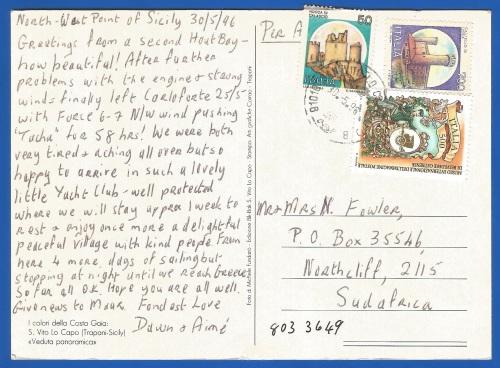 North-West Point of Sicily 30/5/96
Greetings from a second Hout Bay -
how beautiful! After further
problems with the engine & strong
winds finally left Carloforte 25/5
with FORCE 6-7 N/W wind pushing
"Tacha" for 58 hrs! We were both
very tired & aching all over but so
happy to arrive in such a lovely
little Yacht Club - well protected
where we will stay approx 1 week to
rest & enjoy once more a delightful
peaceful village with kind people. From
here 4 more days of sailing but
stopping at night until we reach Greece
So far all O.K. Hope you are all well.
Give news to Maur Fondest Love
Dawn & Aimé
I colori della Costa Gaia:
S. Vito Lo Capo (Trapani-Sicily)
«Veduta panoramica»
Per A
50
ITALIA
ITALIA
500
Mr & Mrs N. Fowler,
P.O. Box 35546
Northcliff, 2115
Sudafrica
803 3649